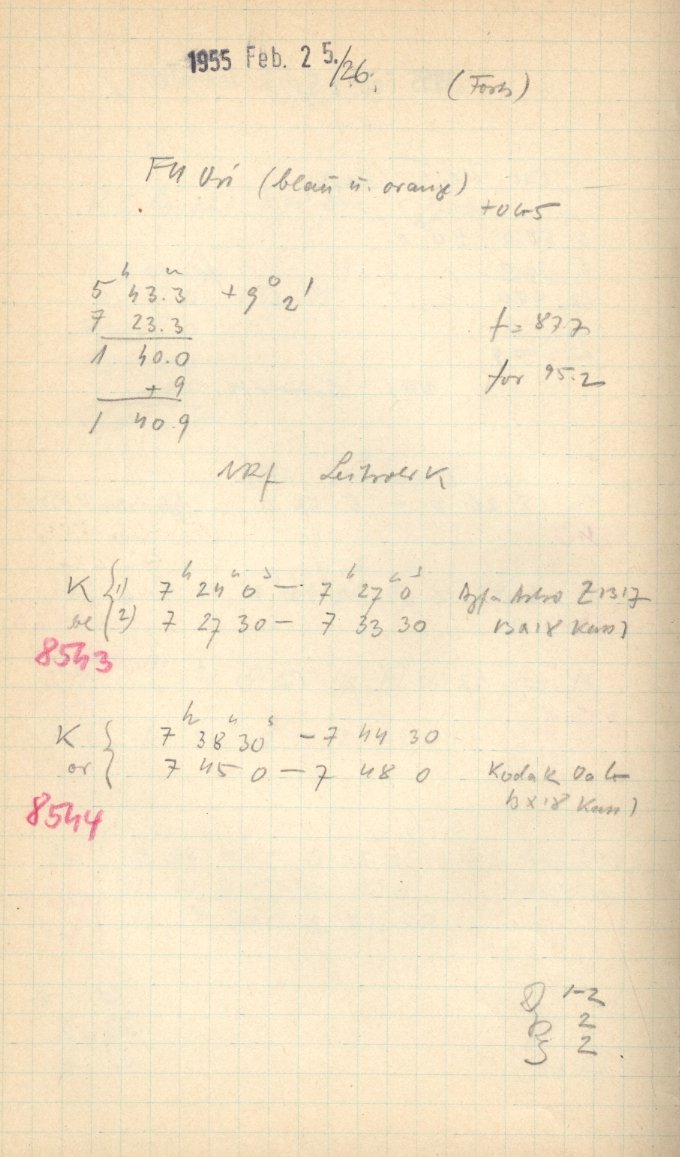 1955 Feb. 25./26.
(Forts)
FU Ori (blau u. orange)
5ʰ 43.3ᵐ +9° 2'
7 23.3
1 40.0
+ 9
1 40.9
f = 87.7
for 95.2
K { 1) 7ʰ 24ᵐ 0ˢ — 7ʰ 27ᵐ 0ˢ Agfa Astro Z1317
2) 7 27 30 — 7 33 30 13 x 18 Kass)
8543
K { 7ʰ 38ᵐ 30ˢ — 7 44 30
or 7 45 0 — 7 48 0 Kodak
13 x 18 Kass)
8544
1-2
2
2